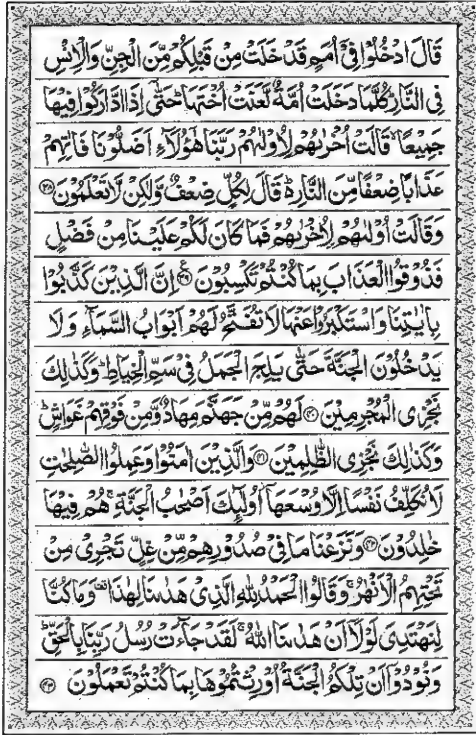 قَالَ ادْخُلُوْا فِیْۤ اُمَمٍ قَدْ خَلَتْ مِنْ قَبْلِكُمْ مِّنَ الْجِنِّ وَالْاِنْسِ
فِی النَّارِ ؕ كُلَّمَا دَخَلَتْ اُمَّةٌ لَّعَنَتْ اُخْتَهَا ؕ حَتّٰۤی اِذَا ادَّارَكُوْا فِیْهَا
جَمِیْعًا ۙ قَالَتْ اُخْرٰىهُمْ لِاُوْلٰىهُمْ رَبَّنَا هٰۤؤُلَآءِ اَضَلُّوْنَا فَاٰتِهِمْ
عَذَابًا ضِعْفًا مِّنَ النَّارِ ؕ۬ قَالَ لِكُلٍّ ضِعْفٌ وَّلٰكِنْ لَّا تَعْلَمُوْنَ ۝۳۸
وَقَالَتْ اُوْلٰىهُمْ لِاُخْرٰىهُمْ فَمَا كَانَ لَكُمْ عَلَیْنَا مِنْ فَضْلٍ
فَذُوْقُوا الْعَذَابَ بِمَا كُنْتُمْ تَكْسِبُوْنَ ۝۳۹ اِنَّ الَّذِیْنَ كَذَّبُوْا
بِاٰیٰتِنَا وَاسْتَكْبَرُوْا عَنْهَا لَا تُفَتَّحُ لَهُمْ اَبْوَابُ السَّمَآءِ وَلَا
یَدْخُلُوْنَ الْجَنَّةَ حَتّٰی یَلِجَ الْجَمَلُ فِیْ سَمِّ الْخِیَاطِ ؕ وَكَذٰلِكَ
نَجْزِی الْمُجْرِمِیْنَ ۝۴۰ لَهُمْ مِّنْ جَهَنَّمَ مِهَادٌ وَّمِنْ فَوْقِهِمْ غَوَاشٍ ؕ
وَكَذٰلِكَ نَجْزِی الظّٰلِمِیْنَ ۝۴۱ وَالَّذِیْنَ اٰمَنُوْا وَعَمِلُوا الصّٰلِحٰتِ
لَا نُكَلِّفُ نَفْسًا اِلَّا وُسْعَهَاۤ ؗ اُولٰٓىِٕكَ اَصْحٰبُ الْجَنَّةِ ۚ هُمْ فِیْهَا
خٰلِدُوْنَ ۝۴۲ وَنَزَعْنَا مَا فِیْ صُدُوْرِهِمْ مِّنْ غِلٍّ تَجْرِیْ مِنْ
تَحْتِهِمُ الْاَنْهٰرُ ۚ وَقَالُوا الْحَمْدُ لِلّٰهِ الَّذِیْ هَدٰىنَا لِهٰذَا ۫ وَمَا كُنَّا
لِنَهْتَدِیَ لَوْلَاۤ اَنْ هَدٰىنَا اللّٰهُ ۚ لَقَدْ جَآءَتْ رُسُلُ رَبِّنَا بِالْحَقِّ ؕ
وَنُوْدُوْۤا اَنْ تِلْكُمُ الْجَنَّةُ اُوْرِثْتُمُوْهَا بِمَا كُنْتُمْ تَعْمَلُوْنَ ۝۴۳